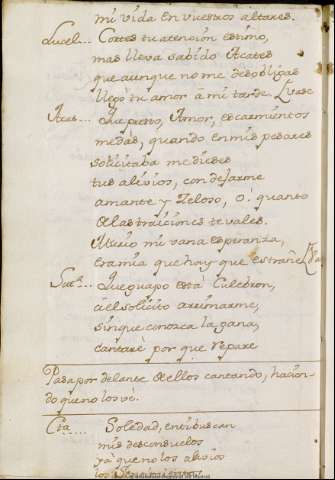 mi vida en vuestros altares.
Lucel... Cortes tu atencion estimo,
mas lleva sabido Acates
que aunque no me desobligas
llegò tu amor à mi tarde. Vase
Acas... Que presto, Amor, escarmientos
me dàs, quando en mis pesares
solicitaba me dieses
tus alivios, con dejarme
amante y zeloso, ò! quanto
de las traiciones te vales.
Murio mi vana esperanza,
era mia que hay que estrañe
Que guapo està Culebron,
à el solicito arrimarme,
sin que conozca la gana,
cantarè por que repare
Pasa por delante de ellos cantando, hacien-
do que no los vè.
Cta.... Soledad, en ti buscan
mis desconsuelos
yà que no los alivios
los